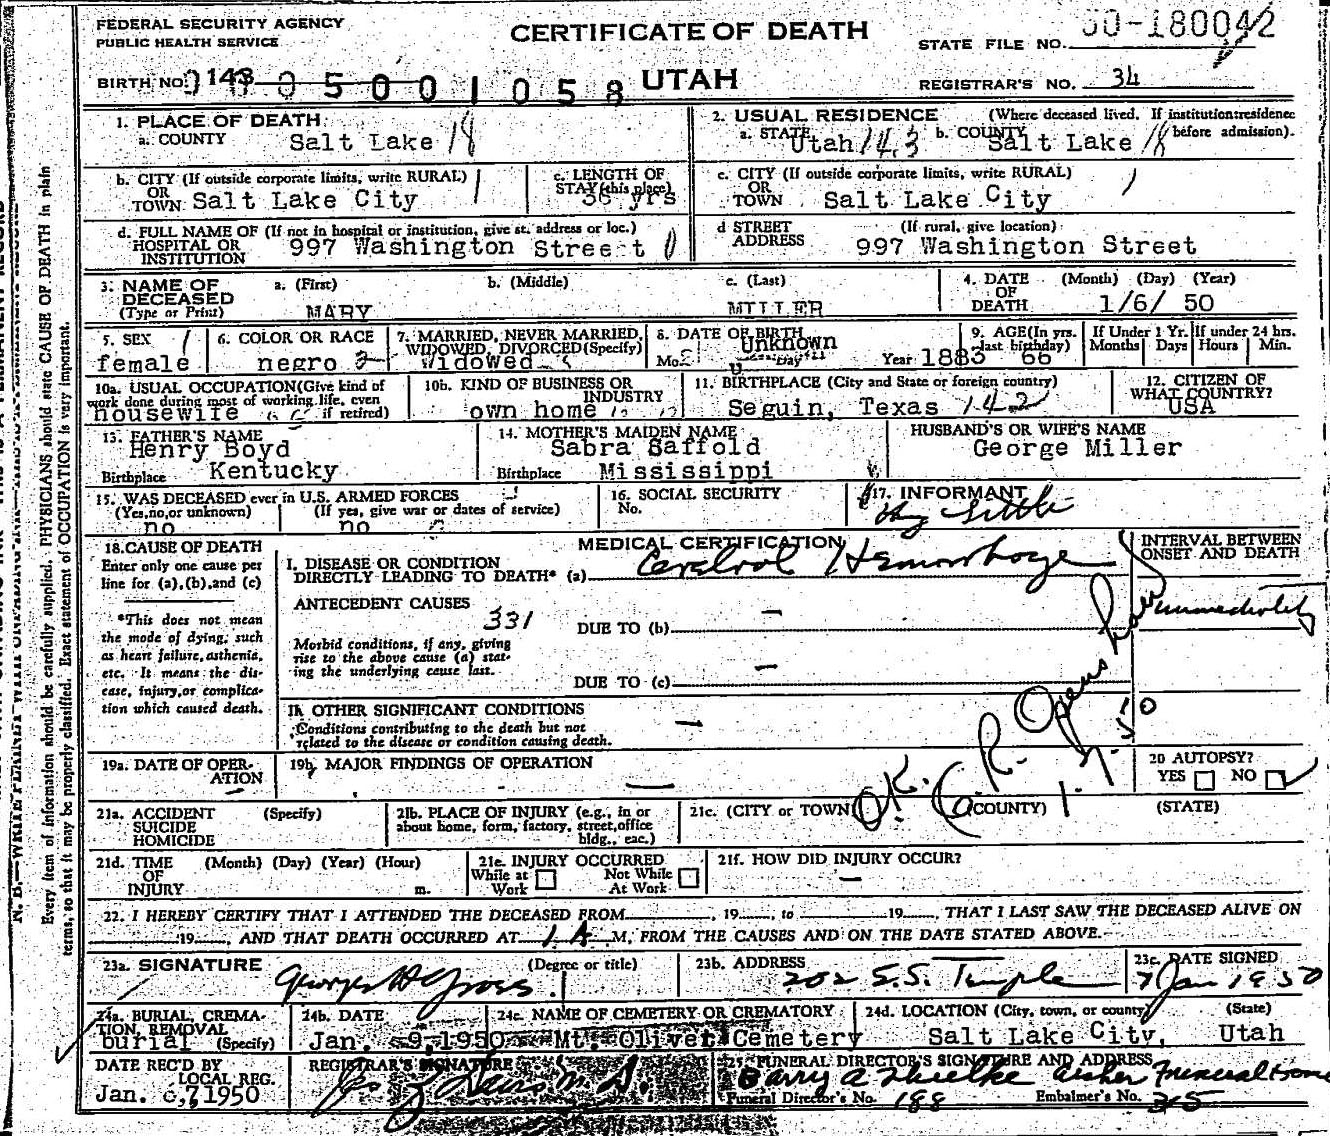 FEDERAL SECURITY AGENCY
PUBLIC HEALTH SERVICE
CERTIFICATE OF DEATH
UTAH
STATE FILE NO. 50-180042
BIRTH NO. 143 05001058
REGISTRAR'S NO. 34
1. PLACE OF DEATH
a. COUNTY Salt Lake 18
2. USUAL RESIDENCE (Where deceased lived. If institution:residence before admission).
a. STATE Utah 143 b. COUNTY Salt Lake 18
b. CITY (If outside corporate limits, write RURAL)
OR
TOWN Salt Lake City 1
c. LENGTH OF
STAY (this place)
36 yrs
c. CITY (If outside corporate limits, write RURAL)
OR
TOWN Salt Lake City 1
d. FULL NAME OF (If not in hospital or institution, give st. address or loc.)
HOSPITAL OR
INSTITUTION 997 Washington Street 0
d STREET
ADDRESS
(If rural, give location)
997 Washington Street
3. NAME OF
DECEASED
(Type or Print)
a. (First)
MARY
b. (Middle)
c. (Last)
MILLER
4. DATE
OF
DEATH
(Month) (Day) (Year)
1/6/ 50
5. SEX 1
female
6. COLOR OR RACE
negro 2
7. MARRIED, NEVER MARRIED,
WIDOWED, DIVORCED(Specify)
Widowed
8. DATE OF BIRTH
Unknown
Mo. Day Year 1883
9. AGE(In yrs.
last birthday)
66
If Under 1 Yr.
Months Days
If under 24 hrs.
Hours Min.
10a. USUAL OCCUPATION(Give kind of
work done during most of working life, even
if retired)
housewife
10b. KIND OF BUSINESS OR
INDUSTRY
own home
11. BIRTHPLACE (City and State or foreign country)
Seguin, Texas 142
12. CITIZEN OF
WHAT COUNTRY?
USA
13. FATHER'S NAME
Henry Boyd
Birthplace Kentucky
14. MOTHER'S MAIDEN NAME
Sabra Saffold
Birthplace Mississippi
HUSBAND'S OR WIFE'S NAME
George Miller
15. WAS DECEASED ever in U.S. ARMED FORCES
(Yes,no,or unknown) (If yes, give war or dates of service)
no no
16. SOCIAL SECURITY
No.
17. INFORMANT
Little
18.CAUSE OF DEATH
Enter only one cause per
line for (a),(b),and (c)
*This does not mean
the mode of dying, such
as heart failure, asthenia,
etc. It means the dis-
ease, injury,or complica-
tion which caused death.
MEDICAL CERTIFICATION
I. DISEASE OR CONDITION
DIRECTLY LEADING TO DEATH* (a) Cerebral Hemorrhage
ANTECEDENT CAUSES
331
Morbid conditions, if any, giving
rise to the above cause (a) stat-
ing the underlying cause last.
DUE TO (b) -
DUE TO (c) -
II. OTHER SIGNIFICANT CONDITIONS
Conditions contributing to the death but not
related to the disease or condition causing death.
-
INTERVAL BETWEEN
ONSET AND DEATH
immediately
O.K. C. R. Openshaw
1-7-50
19a. DATE OF OPER-
ATION
-
19b. MAJOR FINDINGS OF OPERATION
-
20 AUTOPSY?
YES NO
21a. ACCIDENT
SUICIDE
HOMICIDE
(Specify)
21b. PLACE OF INJURY (e.g., in or
about home, form, factory, street,office
bldg., eac.)
21c. (CITY or TOWN) (COUNTY) (STATE)
21d. TIME
OF
INJURY
(Month) (Day) (Year) (Hour)
m.
21e. INJURY OCCURRED
While at
Work
Not While
At Work
21f. HOW DID INJURY OCCUR?
-
22. I HEREBY CERTIFY THAT I ATTENDED THE DECEASED FROM , 19 , to 19 , THAT I LAST SAW THE DECEASED ALIVE ON
19 , AND THAT DEATH OCCURRED AT 1 A M, FROM THE CAUSES AND ON THE DATE STATED ABOVE.
23a. SIGNATURE (Degree or title)
George H Gross
23b. ADDRESS
202 E.S. Temple
23c. DATE SIGNED
7 Jan 1950
24a. BURIAL, CREMA-
TION, REMOVAL
(Specify)
burial
24b. DATE
Jan. 9,1950
24c. NAME OF CEMETERY OR CREMATORY
Mt. Olivet Cemetery
24d. LOCATION (City, town, or county) (State)
Salt Lake City, Utah
DATE REC'D BY
LOCAL REG.
Jan. 7 1950
REGISTRAR'S SIGNATURE
M.D.
25. FUNERAL DIRECTOR'S SIGNATURE AND ADDRESS
Funeral Home
Funeral Director's No. 188
Embalmer's No. 315
Every item of information should be carefully supplied. PHYSICIANS should state CAUSE OF DEATH in plain
terms, so that it may be properly classified. Exact statement of OCCUPATION is very important.